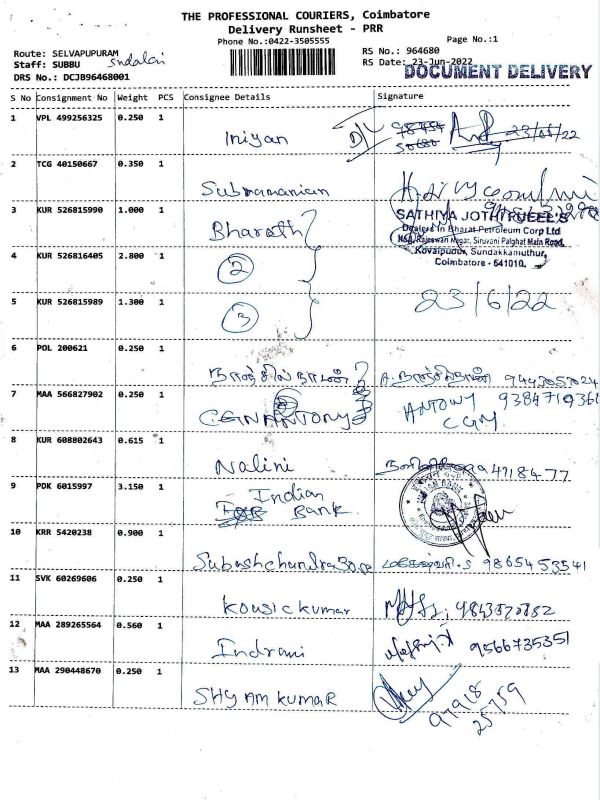 THE PROFESSIONAL COURIERS, Coimbatore
Delivery Runsheet - PRR
Phone No.:0422-3505555
Page No.:1
Route: SELVAPUPURAM
RS No.: 964680
Staff: SUBBU
RS Date: 23-Jun-2022
DOCUMENT DELIVERY
DRS No.: DCJB96468001
S No Consignment No Weight PCS Consignee Details Signature
1 VPL 499256325 0.250 1 Iniyan
2 TCG 40150667 0.350 1 Subramanian
3 KUR 526815990 1.000 1 Bharath
SATHIYA JOTHI FUEL'S
Dealers in Bharat Petroleum Corp Ltd
Rajeswari Nagar, Siruvani Palghat Main Road,
Kovaipudur, Sundakkamuthur,
Coimbatore - 641010.
4 KUR 526816405 2.800 1 2
5 KUR 526815989 1.300 1 3 23/6/22
6 POL 200621 0.250 1
7 MAA 566827902 0.250 1 ANTONY ANTONY
CGM
8 KUR 608802643 0.615 1 Nalini
9 PDK 6015997 3.150 1 Indian
Bank
10 KRR 5420238 0.900 1 9865453541
11 SVK 60269606 0.250 1 Kousickumar
12 MAA 289265564 0.560 1 Indrani 9566735351
13 MAA 290448670 0.250 1 SHYAMKUMAR
97918
25759